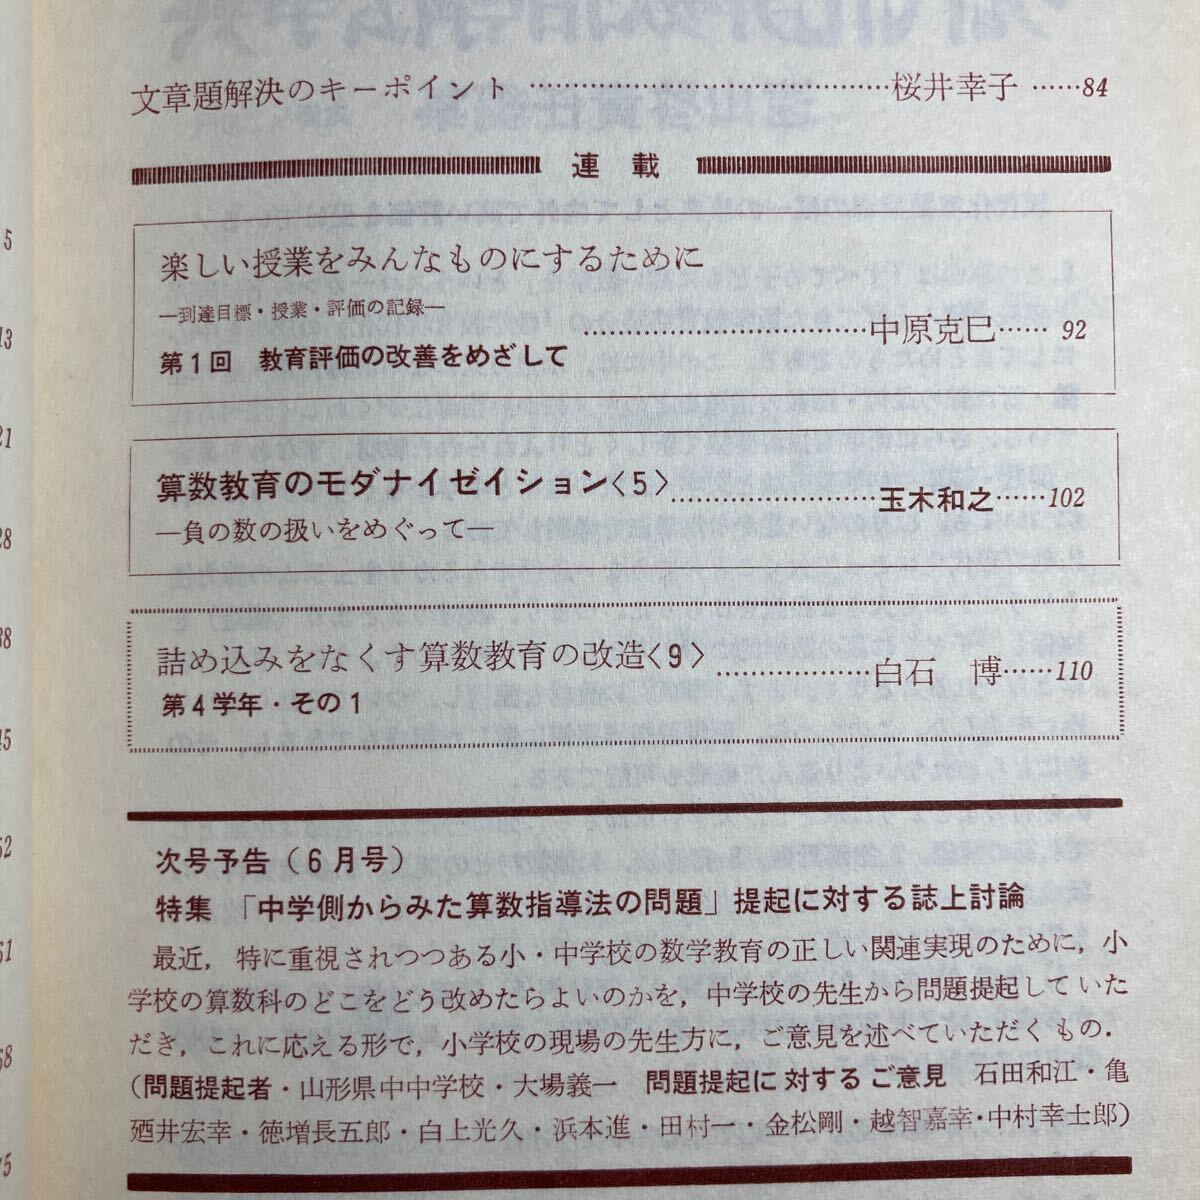 文章題解決のキーポイント……………………………………桜井幸子……84
連載
楽しい授業をみんなものにするために
―到達目標・授業・評価の記録―
第1回 教育評価の改善をめざして
……………………………中原克巳…… 92
算数教育のモダナイゼイション〈5〉……………………玉木和之……102
―負の数の扱いをめぐって―
詰め込みをなくす算数教育の改造〈9〉………………白石 博……110
第4学年・その1
次号予告(6月号)
特集 「中学側からみた算数指導法の問題」提起に対する誌上討論
最近,特に重視されつつある小・中学校の数学教育の正しい関連実現のために,小
学校の算数科のどこをどう改めたらよいのかを,中学校の先生から問題提起していた
だき,これに応える形で,小学校の現場の先生方に,ご意見を述べていただくもの.
(問題提起者・山形県中中学校・大場義一 問題提起に対するご意見 石田和江・亀
廼井宏幸・徳増長五郎・白上光久・浜本進・田村一・金松剛・越智嘉幸・中村幸士郎)
5
13
21
28
38
45
52
61
68
75